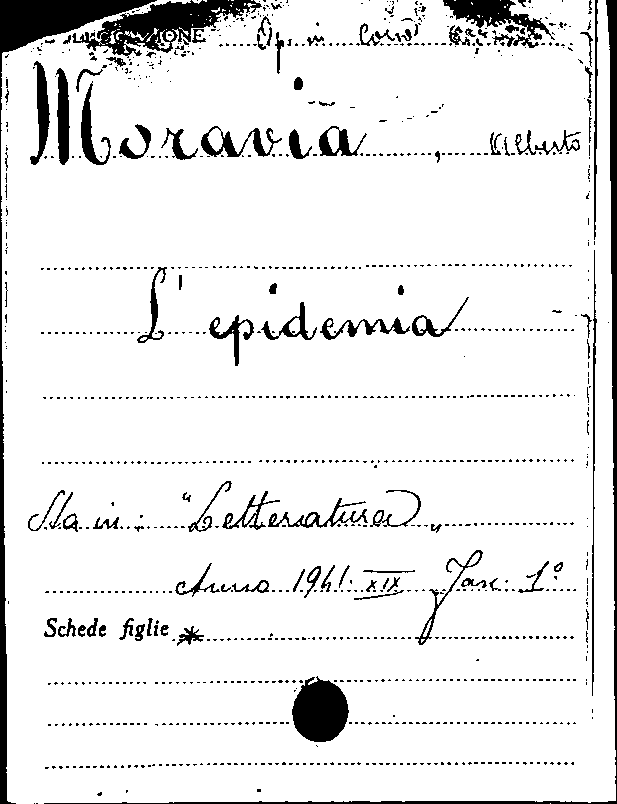 COLLOCAZIONE Op. in Corso
Moravia, Alberto
L'epidemia
Sta in: "Letteratura"
Anno 1941. XIX Fasc. 1°
Schede figlie *